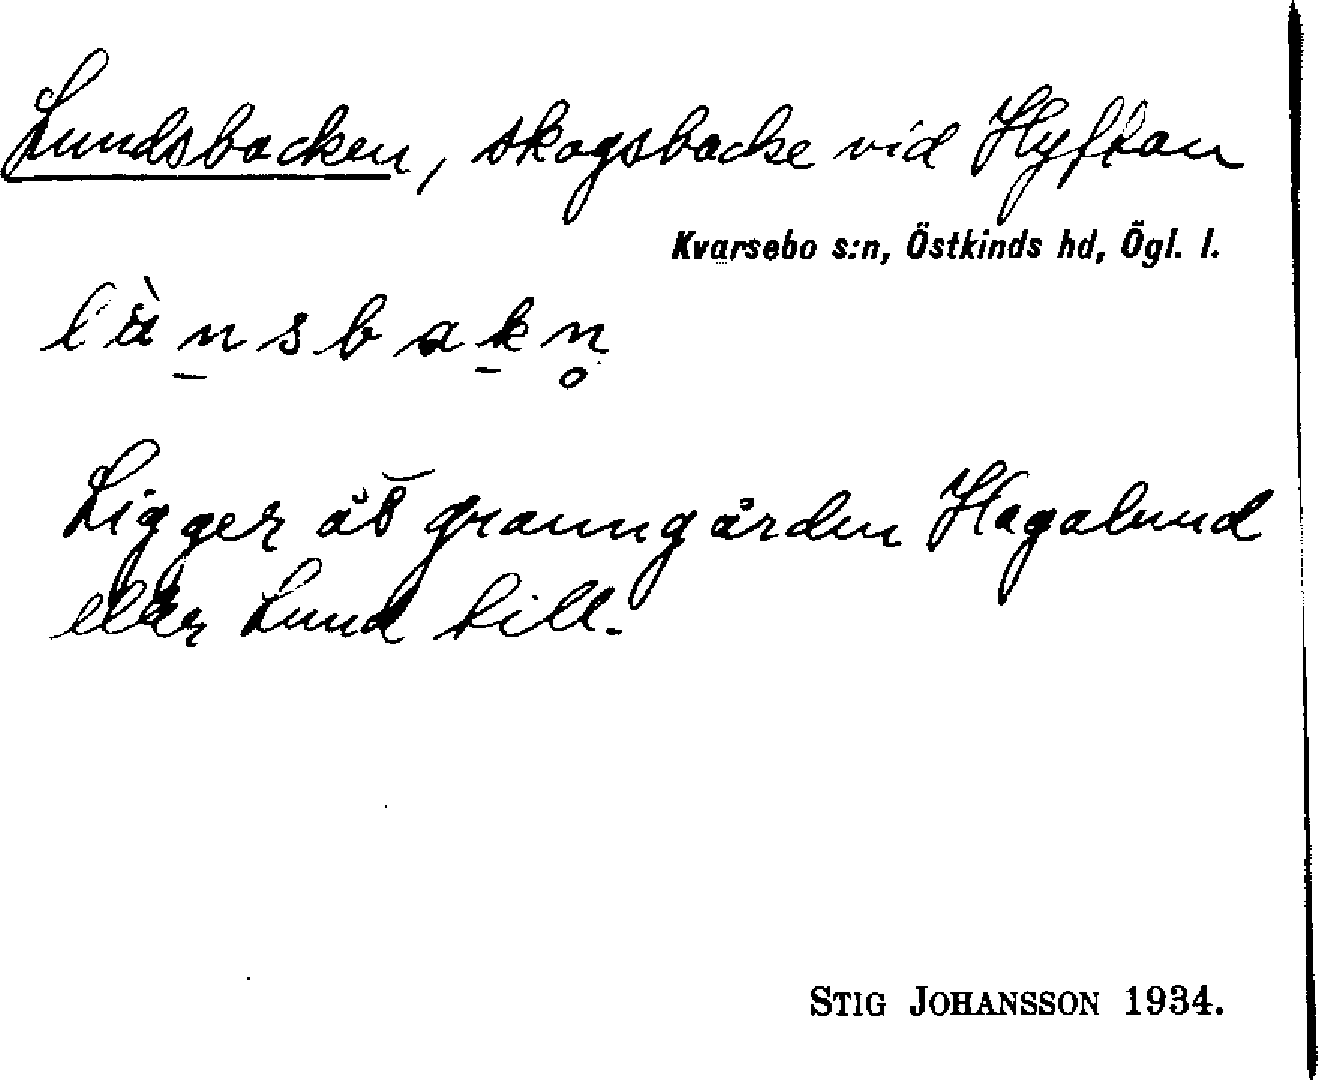 Lundsbacken, skogsbacke vid Hyftan
Kvarsebo s:n, Östkinds hd, Ögl. l.
l ù n s b a k n̥
Ligger åt granngården Hagalund
eller Lund till.
STIG JOHANSSON 1934.